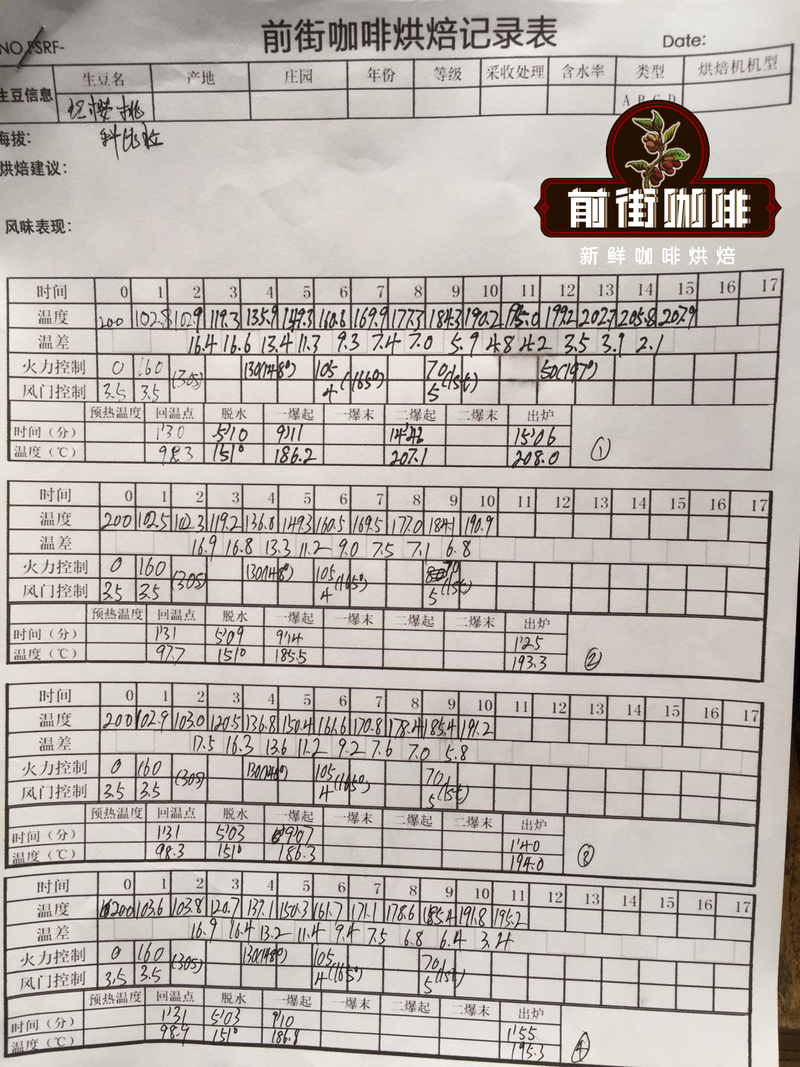 前街咖啡烘焙记录表
NO FSRF- Date:
生豆信息 生豆名 产地 庄园 年份 等级 采收处理 含水率 类型 烘焙机机型
红樱桃 A B C D
海拔:
烘焙建议:
前街咖啡
新鲜咖啡烘焙
风味表现:
时间 0 1 2 3 4 5 6 7 8 9 10 11 12 13 14 15 16 17
温度 200 102.8 102.9 119.3 135.9 149.3 160.6 169.9 177.3 184.3 190.2 195.0 199.2 202.7 205.8 207.9
温差 16.4 16.6 13.4 11.3 9.3 7.4 7.0 5.9 4.8 4.2 3.5 3.9 2.1
火力控制 0 160 (305) 130(148°) 105 (165°) 70 50(197°)
风门控制 3.5 3.5 4 5
预热温度 回温点 脱水 一爆起 一爆末 二爆起 二爆末 出炉
时间(分) 1'30 5'10 9'11 14'42 15'06
温度(℃) 98.3 151° 186.2 207.1 208.0 ①
时间 0 1 2 3 4 5 6 7 8 9 10 11 12 13 14 15 16 17
温度 200 102.5 102.3 119.2 136.8 149.3 160.5 169.5 177.0 184.1 190.9
温差 16.9 16.8 13.3 11.2 9.0 7.5 7.1 6.8
火力控制 0 160 (305) 130(148°) 105 (165°) 70
风门控制 3.5 3.5 4 5
预热温度 回温点 脱水 一爆起 一爆末 二爆起 二爆末 出炉
时间(分) 1'31 5'09 9'14 1'25
温度(℃) 97.7 151° 185.5 193.3 ②
时间 0 1 2 3 4 5 6 7 8 9 10 11 12 13 14 15 16 17
温度 200 102.9 103.0 120.5 136.8 150.4 161.6 170.8 178.4 185.4 191.2
温差 17.5 16.3 13.6 11.2 9.2 7.6 7.0 5.8
火力控制 0 160 (305) 130(148°) 105 (165°) 70
风门控制 3.5 3.5 4 5
预热温度 回温点 脱水 一爆起 一爆末 二爆起 二爆末 出炉
时间(分) 1'31 5'03 9'07 1'40
温度(℃) 98.3 151° 186.3 194.0 ③
时间 0 1 2 3 4 5 6 7 8 9 10 11 12 13 14 15 16 17
温度 200 103.6 103.8 120.7 137.1 150.3 161.7 171.1 178.6 185.4 191.8 195.2
温差 16.9 16.4 13.2 11.4 9.4 7.5 6.8 6.4 3.4
火力控制 0 160 (305) 130(148°) 105 (165°) 70
风门控制 3.5 3.5 4 5
预热温度 回温点 脱水 一爆起 一爆末 二爆起 二爆末 出炉
时间(分) 1'31 5'03 9'10 1'55
温度(℃) 98.9 151° 186.9 195.3 ④